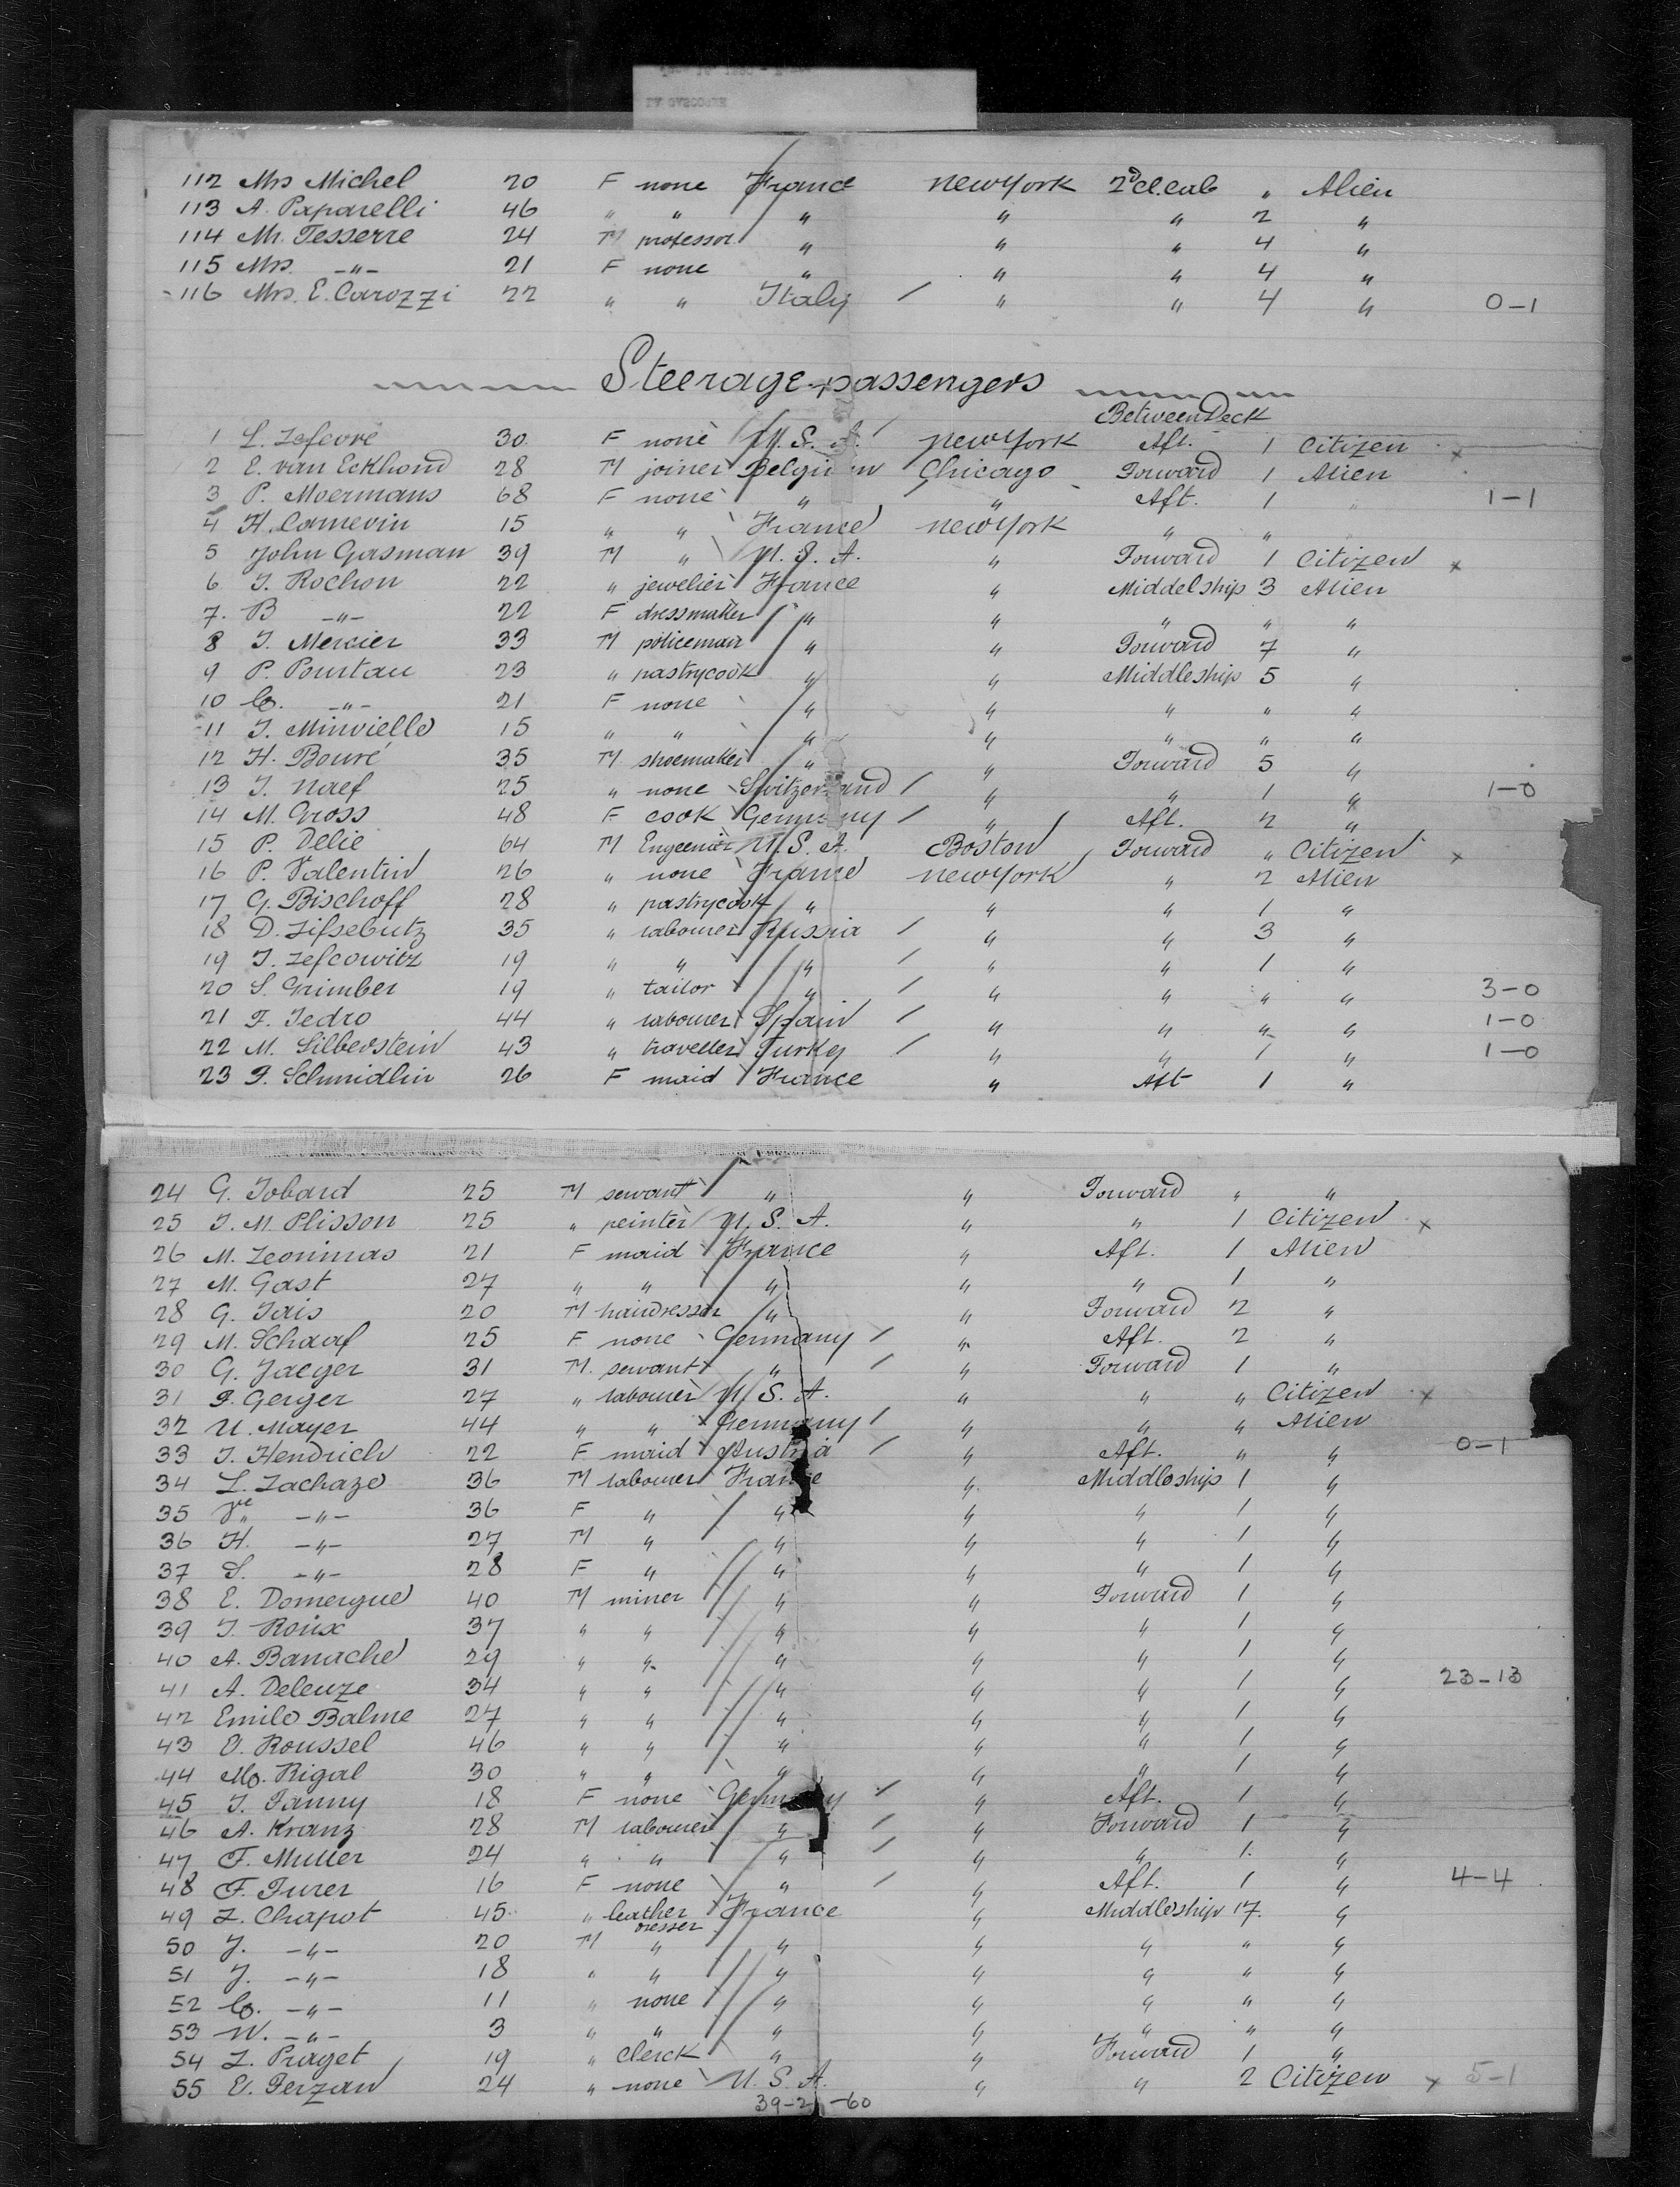 112 Mrs Michel 20 F none France New York 2d cl. cab " Alien
113 A. Paparelli 46 " " " " " 2 "
114 Mr. Tesserre 24 M professor " " " 4 "
115 Mrs. -"- 21 F none " " " 4 "
116 Mrs. E. Carozzi 22 " " Italy / " " 4 " 0-1
Steerage passengers
Between Deck
1 L. Lefevre 30 F none U.S.A. New York Aft. 1 Citizen x
2 E. van Eckhond 28 M joiner Belgium Chicago Forward 1 Alien
3 P. Moermans 68 F none " " Aft. 1 " 1-1
4 H. Camevin 15 " " France New York " "
5 John Gasman 39 M " U.S.A. " Forward 1 Citizen x
6 J. Rochon 22 " jewelier France " Middelship 3 Alien
7. B -"- 22 F dressmaker " " " " "
8 J. Mercier 33 M policeman " " Forward 7 "
9 P. Pourtau 23 " pastrycook " " Middleship 5 "
10 C. -"- 21 F none " " " " "
11 J. Minvielle 15 " " " " " " "
12 H. Bouré 35 M shoemaker " " Forward 5 "
13 J. Naef 25 " none Switzerland / " " 1 " 1-0
14 M. Gross 48 F cook Germany / " Aft. 2 "
15 P. Delie 64 M Engeenier U.S.A. Boston Forward " Citizen x
16 P. Valentin 26 " none France New York " 2 Alien
17 G. Bischoff 28 " pastrycook " " " 1 "
18 D. Lifsebutz 35 " labourer Russia / " " 3 "
19 J. Lefcowitz 19 " " " / " " 1 "
20 S. Grimber 19 " tailor " / " " " " 3-0
21 F. Jedro 44 " labourer Spain / " " " " 1-0
22 M. Silberstein 43 " traveller Turkey / " " 1 " 1-0
23 J. Schmidlin 26 F maid France " Aft 1 "
24 G. Jobard 25 M servant " " Forward " "
25 J. M. Plisson 25 " peinter U.S.A. " " 1 Citizen x
26 M. Leonimas 21 F maid France " Aft. 1 Alien
27 M. Gast 27 " " " " " 1 "
28 G. Jais 20 M hairdresser " " Forward 2 "
29 M. Schaaf 25 F none Germany / " Aft. 2 "
30 G. Jaeger 31 M. servant " / " Forward 1 "
31 J. Gerger 27 " labourer U.S.A. " " " Citizen x
32 U. Mayer 44 " " Germany / " " " Alien
33 J. Hendrich 22 F maid Austria / " Aft. " " 0-1
34 L. Lachaze 36 M labourer France " Middleship 1 "
35 Ve " -"- 36 F " " " " 1 "
36 H. -"- 27 M " " " " 1 "
37 S. -"- 28 F " " " " 1 "
38 E. Domergue 40 M miner " " Forward 1 "
39 J. Roux 37 " " " " " 1 "
40 A. Banache 29 " " " " " 1 "
41 A. Deleuze 34 " " " " " 1 " 23-13
42 Emile Balme 27 " " " " " 1 "
43 E. Roussel 46 " " " " " 1 "
44 M. Rigal 30 " " " " " 1 "
45 J. Janny 18 F none Germany / " Aft. 1 "
46 A. Kranz 28 M labourer " / " Forward 1 "
47 F. Muller 24 " " " / " " 1. "
48 F. Furer 16 F none " / " Aft. 1 " 4-4
49 L. Chapot 45 " leather dresser France " Middleship 17. "
50 J. -"- 20 M " " " " " "
51 J. -"- 18 " " " " " " "
52 C. -"- 11 " none " " " " "
53 W. -"- 3 " " " " " " "
54 L. Praget 19 " clerck " " Forward 1 "
55 E. Ferzan 24 " none U.S.A. " " 2 Citizen x 5-1
39-21-60